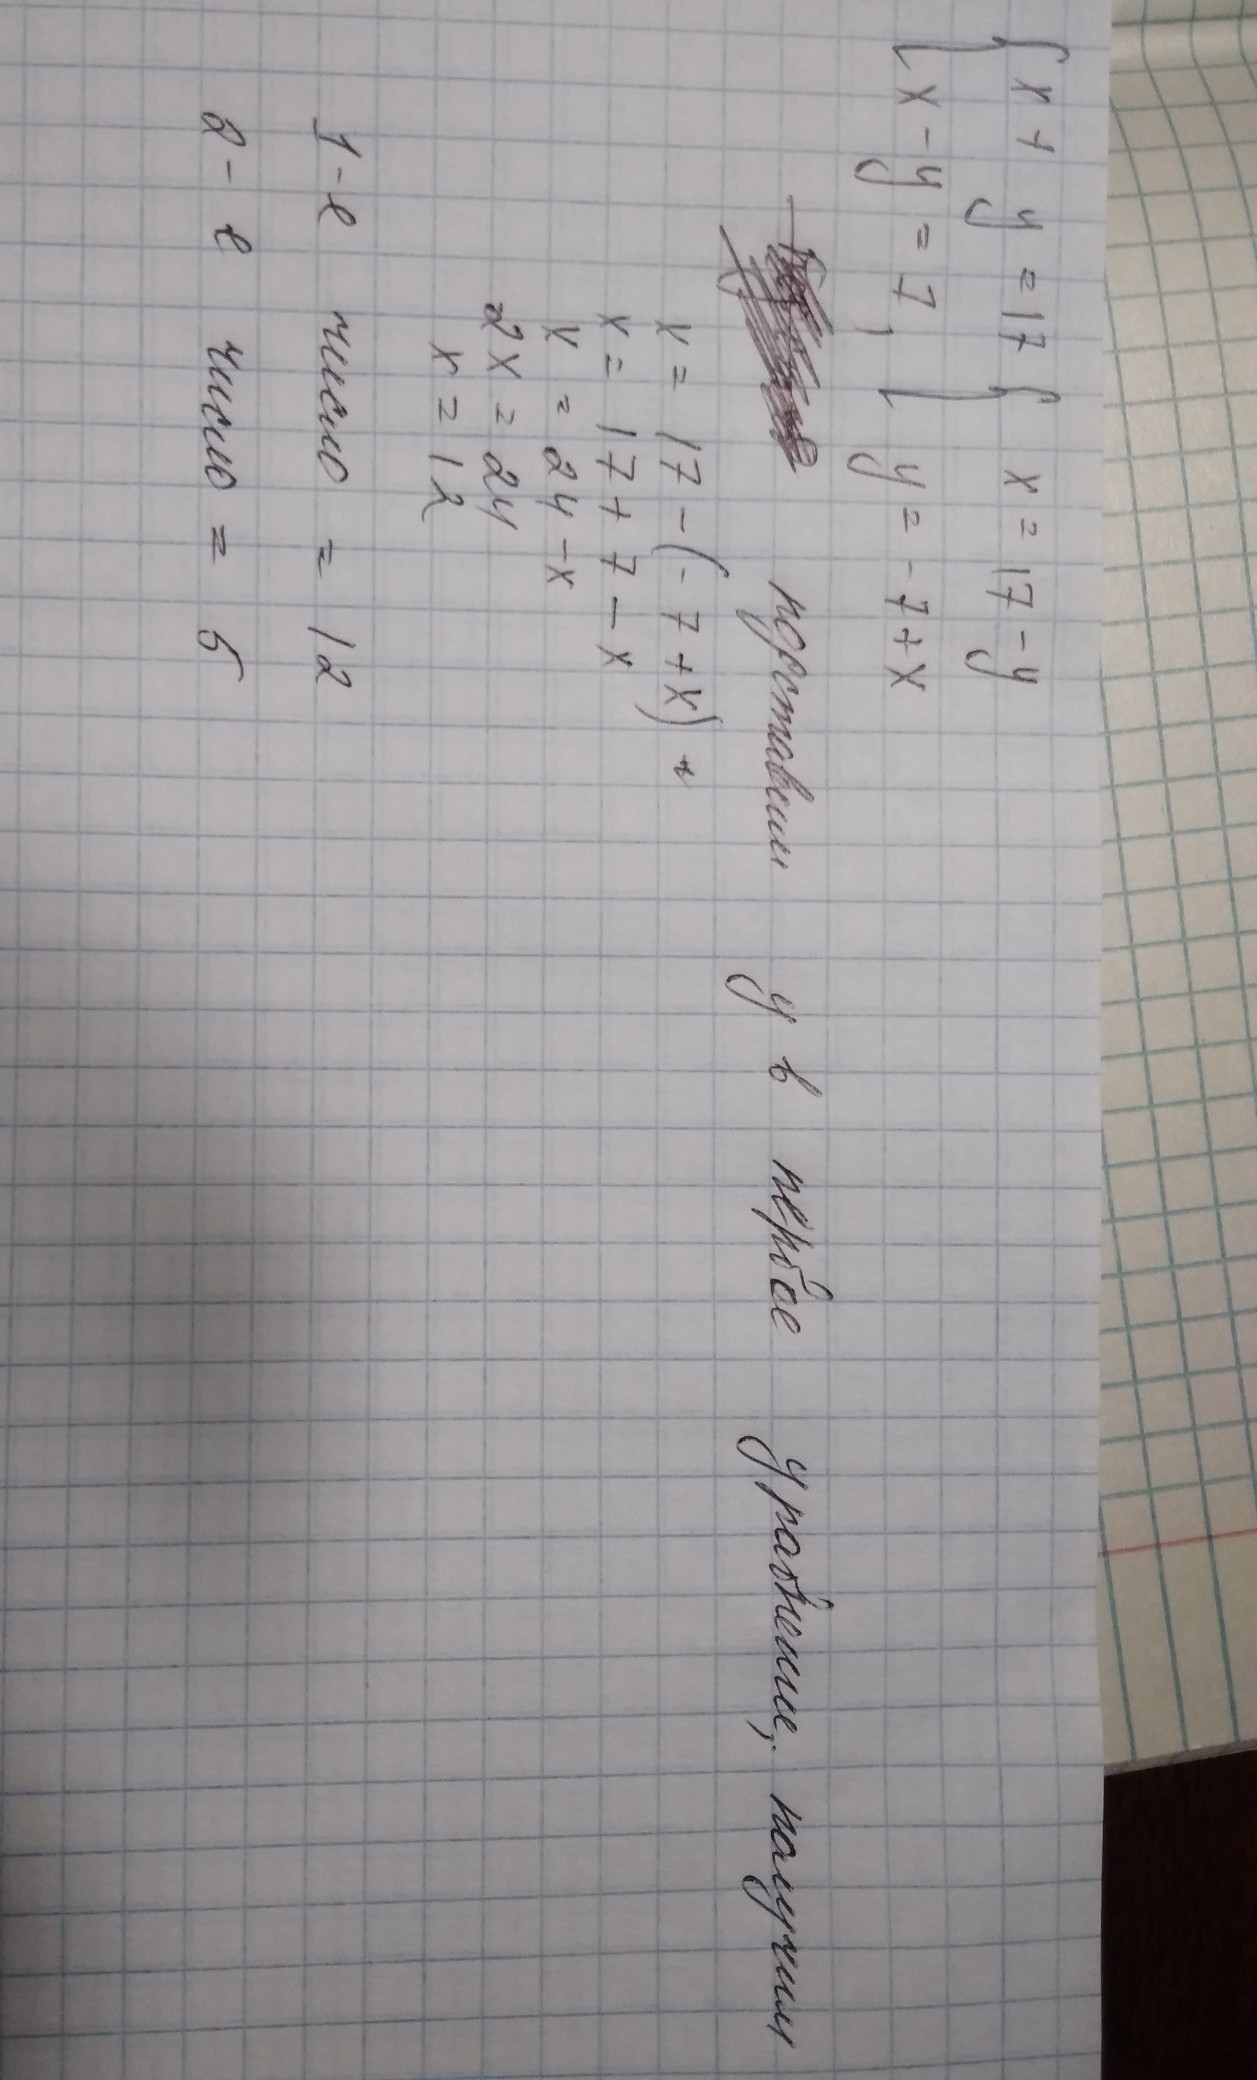 { x + y = 17 { x = 17 - y
{ x - y = 7 , { y = - 7 + x
подставим y в первое уравнение, получим
x = 17 - (- 7 + x)
x = 17 + 7 - x
x = 24 - x
2x = 24
x = 12
1 - е число = 12
2 - е число = 5